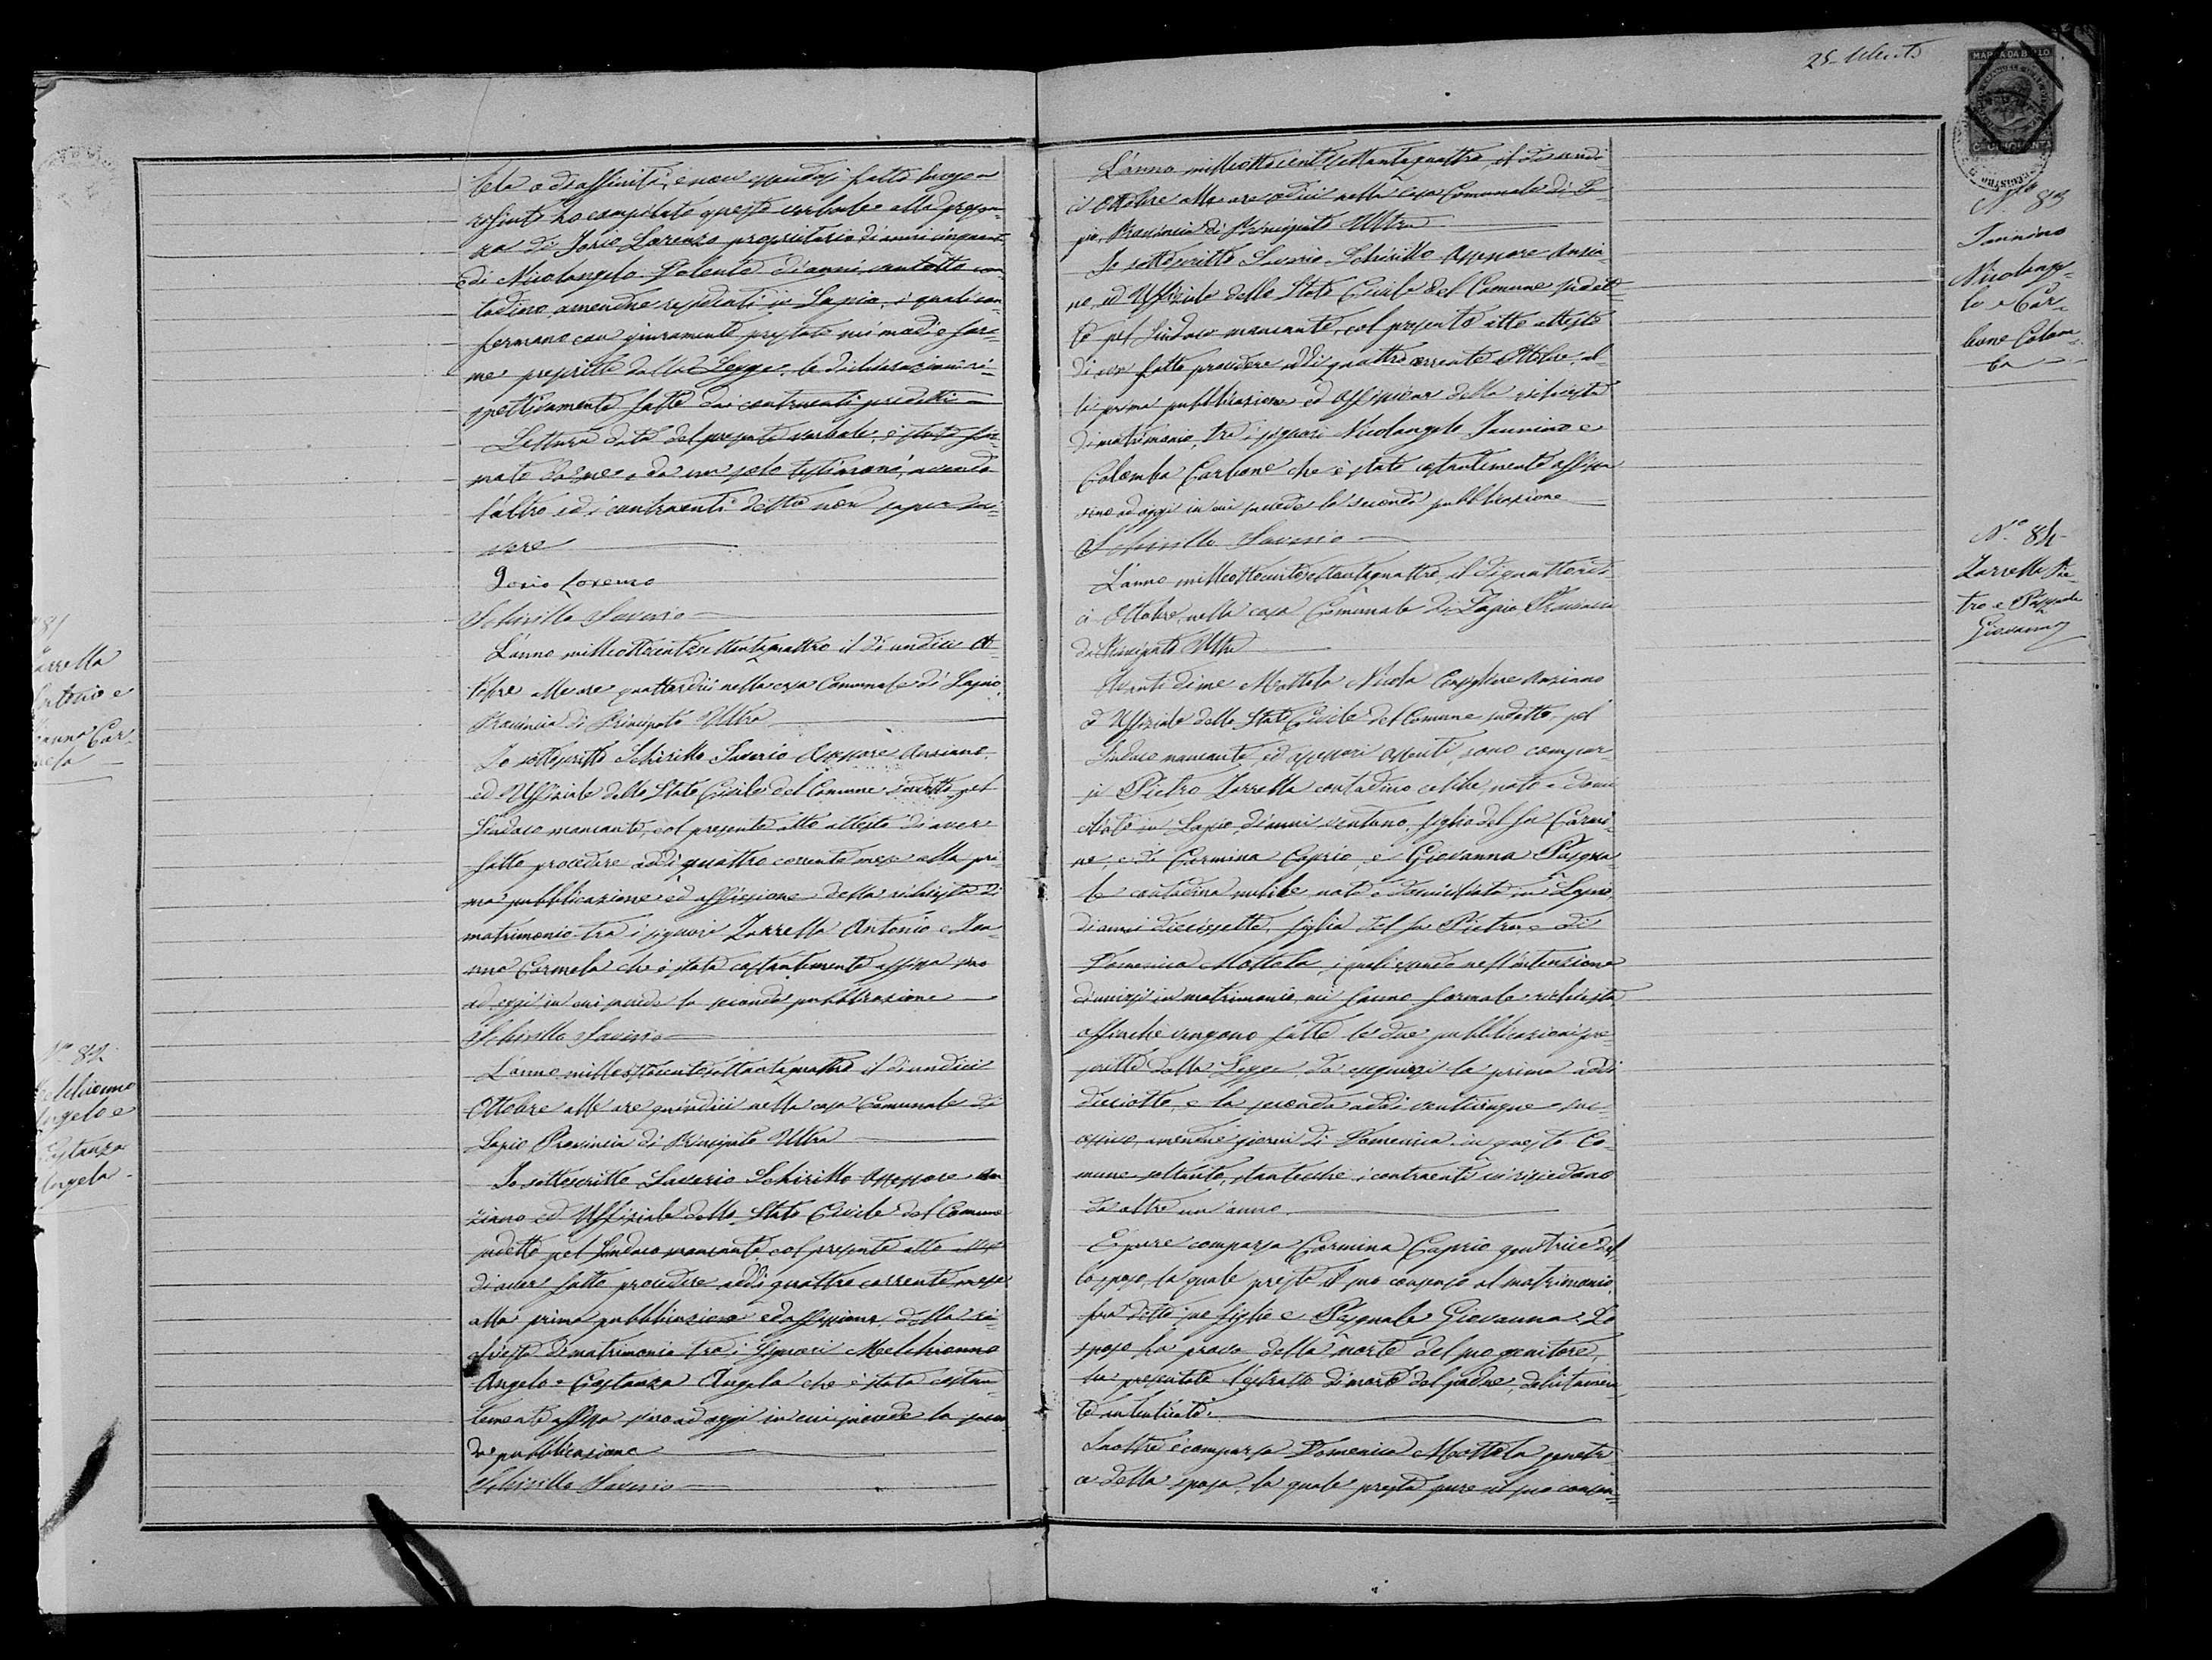 tela o di affinità, e non essendosi fatto luogo a
rifiuto ho compilato questo verbale alla presen-
za di Iorio Lorenzo proprietario di anni cinquanta
e di Nicolangelo Polente di anni ventotto con-
tadino, amendue residenti in Lapio, i quali con-
fermano con giuramento prestato nei modi e for-
me prescritte dalla Legge, le dichiarazioni ri-
spettivamente fatte dai contraenti predetti
Lettura data del presente verbale, è stato fir-
mato da me e da un solo testimone, avendo
l'altro ed i contraenti detto non saper scri-
vere
Iorio Lorenzo
Schirillo Saverio
N° 81
Zarrella
Antonio e
Ianno Car-
mela
L'anno milleottocentosettantaquattro il di undici Ot-
tobre alle ore quattordici nella casa Comunale di Lapio,
Provincia di Principato Ultra
Io sottoscritto Schirillo Saverio Assessore Anziano
ed Uffiziale dello Stato Civile del Comune sudetto pel
Sindaco mancante, col presente atto attesto di aver
fatto procedere addi quattro corrente mese alla pri-
ma pubblicazione ed affissione della richiesta di
matrimonio tra i signori Zarrella Antonio e Ian-
no Carmela che è stata costantemente affissa sino
ad oggi in cui succede la seconda pubblicazione
Schirillo Saverio
N° 82
Melchionno
Angelo e
Costanza
Angela
L'anno milleottocentosettantaquattro il di undici
Ottobre alle ore quindici nella casa Comunale di
Lapio Provincia di Principato Ultra
Io sottoscritto Saverio Schirillo Assessore An-
ziano ed Uffiziale dello Stato Civile del Comune
sudetto pel Sindaco mancante col presente atto attesto
di aver fatto procedere addi quattro corrente mese
alla prima pubblicazione ed affissione della ri-
chiesta di matrimonio tra i Signori Melchionno
Angelo e Costanza Angela che è stata costan-
temente affissa sino ad oggi in cui succede la secon-
da pubblicazione
Schirillo Saverio
25
MARCA DA BOLLO
C. CINQUANTA
N° 83
Iannino
Nicolange-
lo e Car-
bone Colom-
ba
L'anno milleottocentosettantaquattro, il di undi
ci Ottobre alle ore sedici nella casa Comunale di La-
pio, Provincia di Principato Ultra
Io sottoscritto Saverio Schirillo Assessore Anzia-
no, ed Uffiziale dello Stato Civile del Comune sudett-
to pel Sindaco mancante, col presente atto attesto
di aver fatto procedere addi quattro corrente Ottobre, al-
la prima pubblicazione ed affissione della richiesta
di matrimonio, tra i signori Nicolangelo Iannino e
Colomba Carbone che è stata costantemente affissa
sino ad oggi in cui succede la seconda pubblicazione
Schirillo Saverio
N° 84
Zarrella Pie-
tro e Pasquale
Giovanna
L'anno milleottocentosettantaquattro, il di quattordi-
ci Ottobre, nella casa Comunale di Lapio Provincia
di Principato Ultra
Avanti di me Mottola Nicola Consigliere Anziano
ed Uffiziale dello Stato Civile del Comune sudetto pel
Sindaco mancante, ed assessori assenti, sono compar-
si Pietro Zarrella contadino celibe, nato e domi
ciliato in Lapio, di anni ventuno, figlio del fu Carmi-
ne, e di Carmina Caprio, e Giovanna Pasqua-
le contadina nubile nata e domiciliata in Lapio,
di anni diecissette, figlia del fu Pietro, e di
Domenica Mottola, i quali essendo nell'intenzione
di unirsi in matrimonio, mi fanno formale richiesta
affinchè vengano fatte le due pubblicazioni pre-
scritte dalla Legge, da eseguirsi la prima addi
dieciotto, e la seconda addi venticinque suc-
cessivo, amendue giorni di Domenica in questo Co-
mune soltanto, stantecchè i contraenti vi risiedono
da oltre un anno.
È pure comparsa Carmina Caprio genitrice del-
lo sposo, la quale presta il suo consenso al matrimonio,
fra detto suo figlio e Pasquale Giovanna. Lo
sposo, ha prova della morte del suo genitore,
ha presentato l'estratto di morte del padre, debitamen-
te autenticato.
Inoltre è comparsa Domenica Mottola genitri
ce della sposa, la quale presta pure il suo consen-